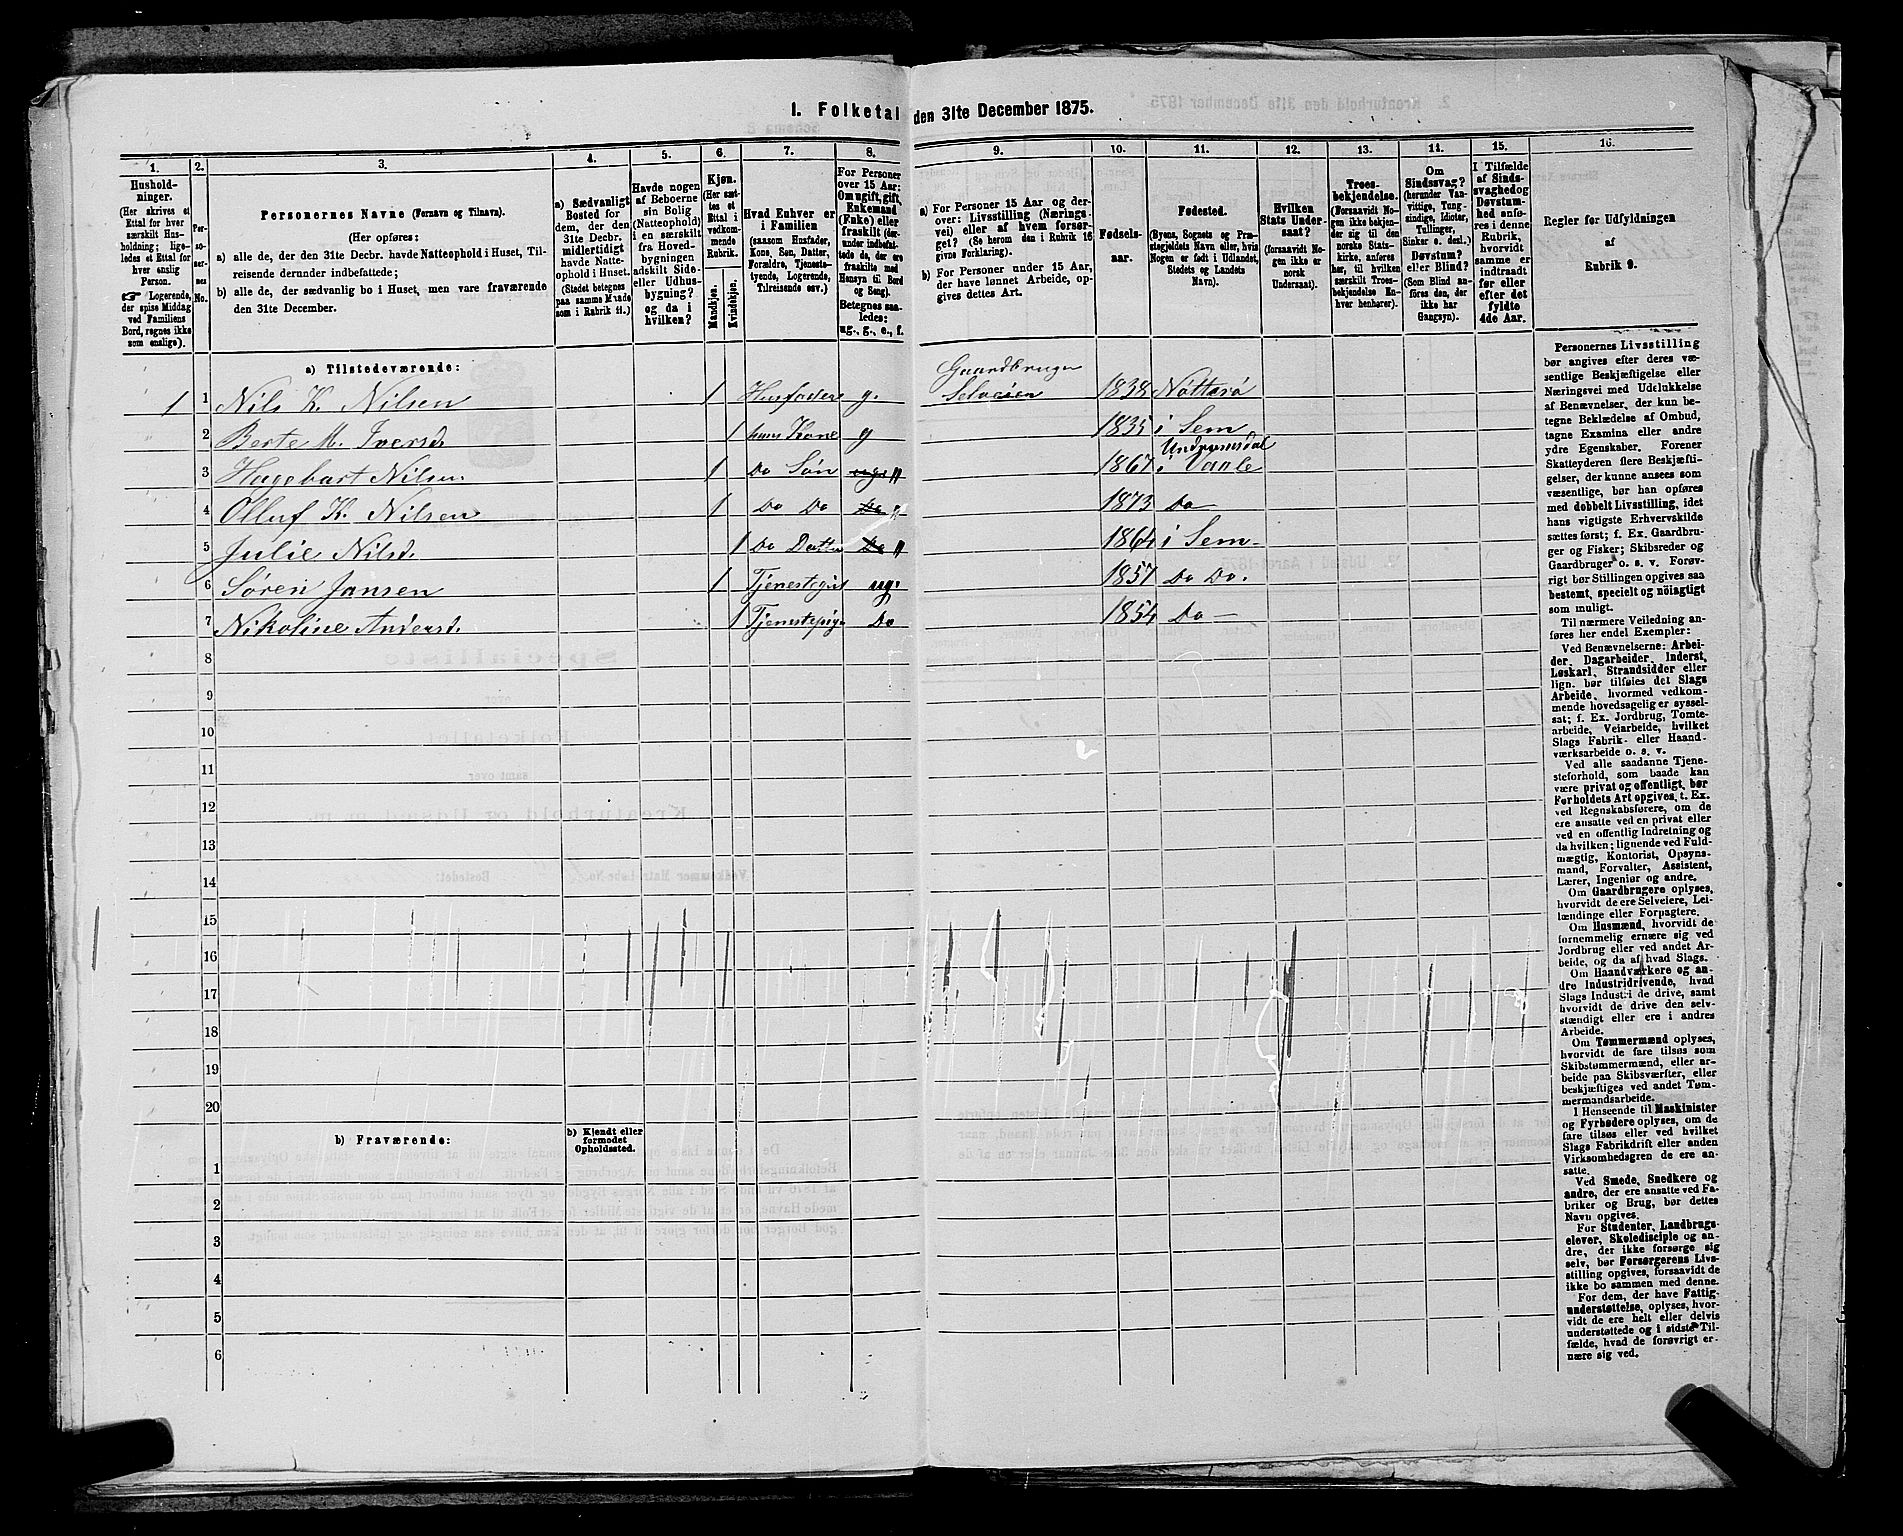 1. Folketal den 31te December 1875.
1. 2. 3. 4. 5. 6. 7. 8. 9. 10. 11. 12. 13. 14. 15. 16.
Hushold-
ninger.
(Her skrives et
Ettal for hver
særskilt Hus-
holdning; lige-
ledes et Ettal for
hver enslig
Person.
☞ Logerende,
der spise Middag
ved Familiens
Bord, regnes ikke
som enslige).
Per-
so-
ner-
nes
No.
Personernes Navne (Fornavn og Tilnavn).
(Her opføres:
a) alle de, der den 31te Decbr. havde Natteophold i Huset, Til-
reisende derunder indbefattede;
b) alle de, der sædvanlig bo i Huset, men vare fraværende
den 31te December.
a) Sædvanligt
Bosted for
dem, der den
31te Decbr.
midlertidigt
havde Natte-
ophold i Huset.
(Stedet betegnes
paa samme Maade
som i Rubrik 11.)
Havde nogen
af Beboerne
sin Bolig
(Natteophold)
i en særskilt
fra Hoved-
bygningen
adskilt Side-
eller Udhus-
bygning?
og da i
hvilken?
Kjøn.
(Her sæt-
tes et
Ettal i
vedkom-
mende
Rubrik.
Mandkjøn.
Kvindekjøn.
Hvad Enhver er
i Familien
(saasom Husfader,
Kone, Søn, Datter,
Forældre, Tjeneste-
tyende, Logerende,
Tilreisende osv.)
For Personer
over 15 Aar:
Om ugift, gift,
Enkemand
(Enke) eller
fraskilt (der-
under indbefat-
tede de, der ere
fraskilte med
Hensyn til Bord
og Seng).
Betegnes saa-
ledes:
ug., g., e., f.
a) For Personer 15 Aar og der-
over: Livsstilling (Nærings-
vei) eller af hvem forsør-
get? (Se herom den i Rubrik 16
givne Forklaring).
b) For Personer under 15 Aar,
der have lønnet Arbeide, op-
gives dettes Art.
Fødsels-
aar.
Fødested.
(Byens, Sognets og Præ-
stegjeldets Navn eller, hvis
Nogen er født i Udlandet,
Stedets og Landets
Navn).
Hvilken
Stats Under-
saat?
(forsaavidt No-
gen ikke er
norsk
Undersaat).
Troes-
bekjendelse.
(Forsaavidt No-
gen ikke bekjen-
der sig til den
norske Stats-
kirke, anføres
her, til hvilken
særskilt Troes-
bekjendelse En-
hver henhører).
Om
Sindssvag?
(herunder Van-
vittige, Tung-
sindige, Idioter,
Tullinger,
Sinker o. desl.)
Døvstum?
eller Blind?
(Som Blind an-
føres den, der
ikke har
Gangsyn).
I Tilfælde
af Sinds-
svaghed og
Døvstum-
hed anfø-
res i denne
Rubrik,
hvorvidt
samme er
indtraadt
før eller
efter det
fyldte
4de Aar.
Regler for Udfyldningen
af
Rubrik 9.
a) Tilstedeværende:
Gaardbruger
1 1 Nils K. Nilsen 1 Husfader g. Selveier 1838 Nøtterø
2 Berte M. Iversd. 1 hans Kone g 1835 i Sem
Undrumsdal
3 Hagebart Nilsen 1 Do Søn ug. " 1867 i Vaale
4 Olluf K. Nilsen 1 Do Do Do " 1873 Do
5 Julie Nilsd. 1 Do Datter Do " 1864 i Sem
6 Søren Jansen 1 Tjenestegut ug. 1857 Do Do.
7 Nikoline Andersd. 1 Tjenestepige Do 1854 Do
8
9
10
11
12
13
14
15
16
17
18
19
20
b) Fraværende:
b) Kjendt eller
formodet
Opholdssted.
1
2
3
4
5
6
Personernes Livsstilling
bør angives efter deres væ-
sentlige Beskjæftigelse eller
Næringsvei med Udelukkelse
af Benævnelser, der kun be-
tegne Beklædelse af Ombud,
tagne Examina eller andre
ydre Egenskaber. Forener
Skatteyderen flere Beskjæfti-
gelser, der kunne ansees som
væsentlige, bør han opføres
med dobbelt Livsstilling, idet
hans vigtigste Erhvervskilde
sættes først; f. Ex. Gaardbru-
ger og Fisker; Skibsreder og
Gaardbruger o. s. v. Forøv-
rigt bør Stillingen opgives saa
bestemt, specielt og nøiagtigt
som muligt.
Til nærmere Veiledning an-
føres her endel Exempler:
Ved Benævnelserne: Arbei-
der, Dagarbeider, Inderst,
Løskarl, Strandsidder eller
lign. bør tilføies det Slags
Arbeide, hvormed vedkom-
mende hovedsagelig er syssel-
sat; f. Ex. Jordbrug, Tomte-
arbeide, Veiarbeide, hvilket
Slags Fabrik- eller Haand-
værksarbeide o. s. v.
Ved alle saadanne Tjene-
steforhold, som baade kan
være privat og offentligt, bør
Forholdets Art opgives, t. Ex.
ved Regnskabsførere, om de
ere ansatte ved en privat eller
ved en offentlig Indretning og
da hvilken; lignende ved Fuld-
mægtig, Kontorist, Opsyns-
mand, Forvalter, Assistent,
Lærer, Ingeniør og andre.
Om Gaardbrugere oplyses,
hvorvidt de ere Selveiere, Lei-
lændinge eller Forpagtere.
Om Husmænd, hvorvidt de
fornemmelig ernære sig ved
Jordbrug eller ved andet Ar-
beide, og da af hvad Slags.
Om Haandværkere og an-
dre Industridrivende, hvad
Slags Industri de drive, samt
hvorvidt de drive den selv-
stændigt eller ere i andres
Arbeide.
Om Tømmermænd oplyses,
hvorvidt de fare tilsøs som
Skibstømmermænd, eller ar-
beide paa Skibsværfter, eller
beskjæftiges ved andet Tøm-
mermandsarbeide.
I Henseende til Maskinister
og Fyrbødere oplyses, om de
fare tilsøs eller ved hvilket
Slags Fabrikdrift eller anden
Virksomhedsgren de ere an-
satte.
Ved Smede, Snedkere og
andre, der ere ansatte ved Fa-
briker og Brug, bør dettes
Navn opgives.
For Studenter, Landbrugs-
elever, Skoledisciple og an-
dre, der ikke forsørge sig
selv, bør Forsørgerens Livs-
stilling opgives, forsaavidt de
ikke bo sammen med denne.
For dem, der have Fattig-
understøttelse, oplyses, hvor-
vidt de ere helt eller delvis
understøttede og i sidste Til-
fælde, hvad de forøvrigt er-
nære sig ved.